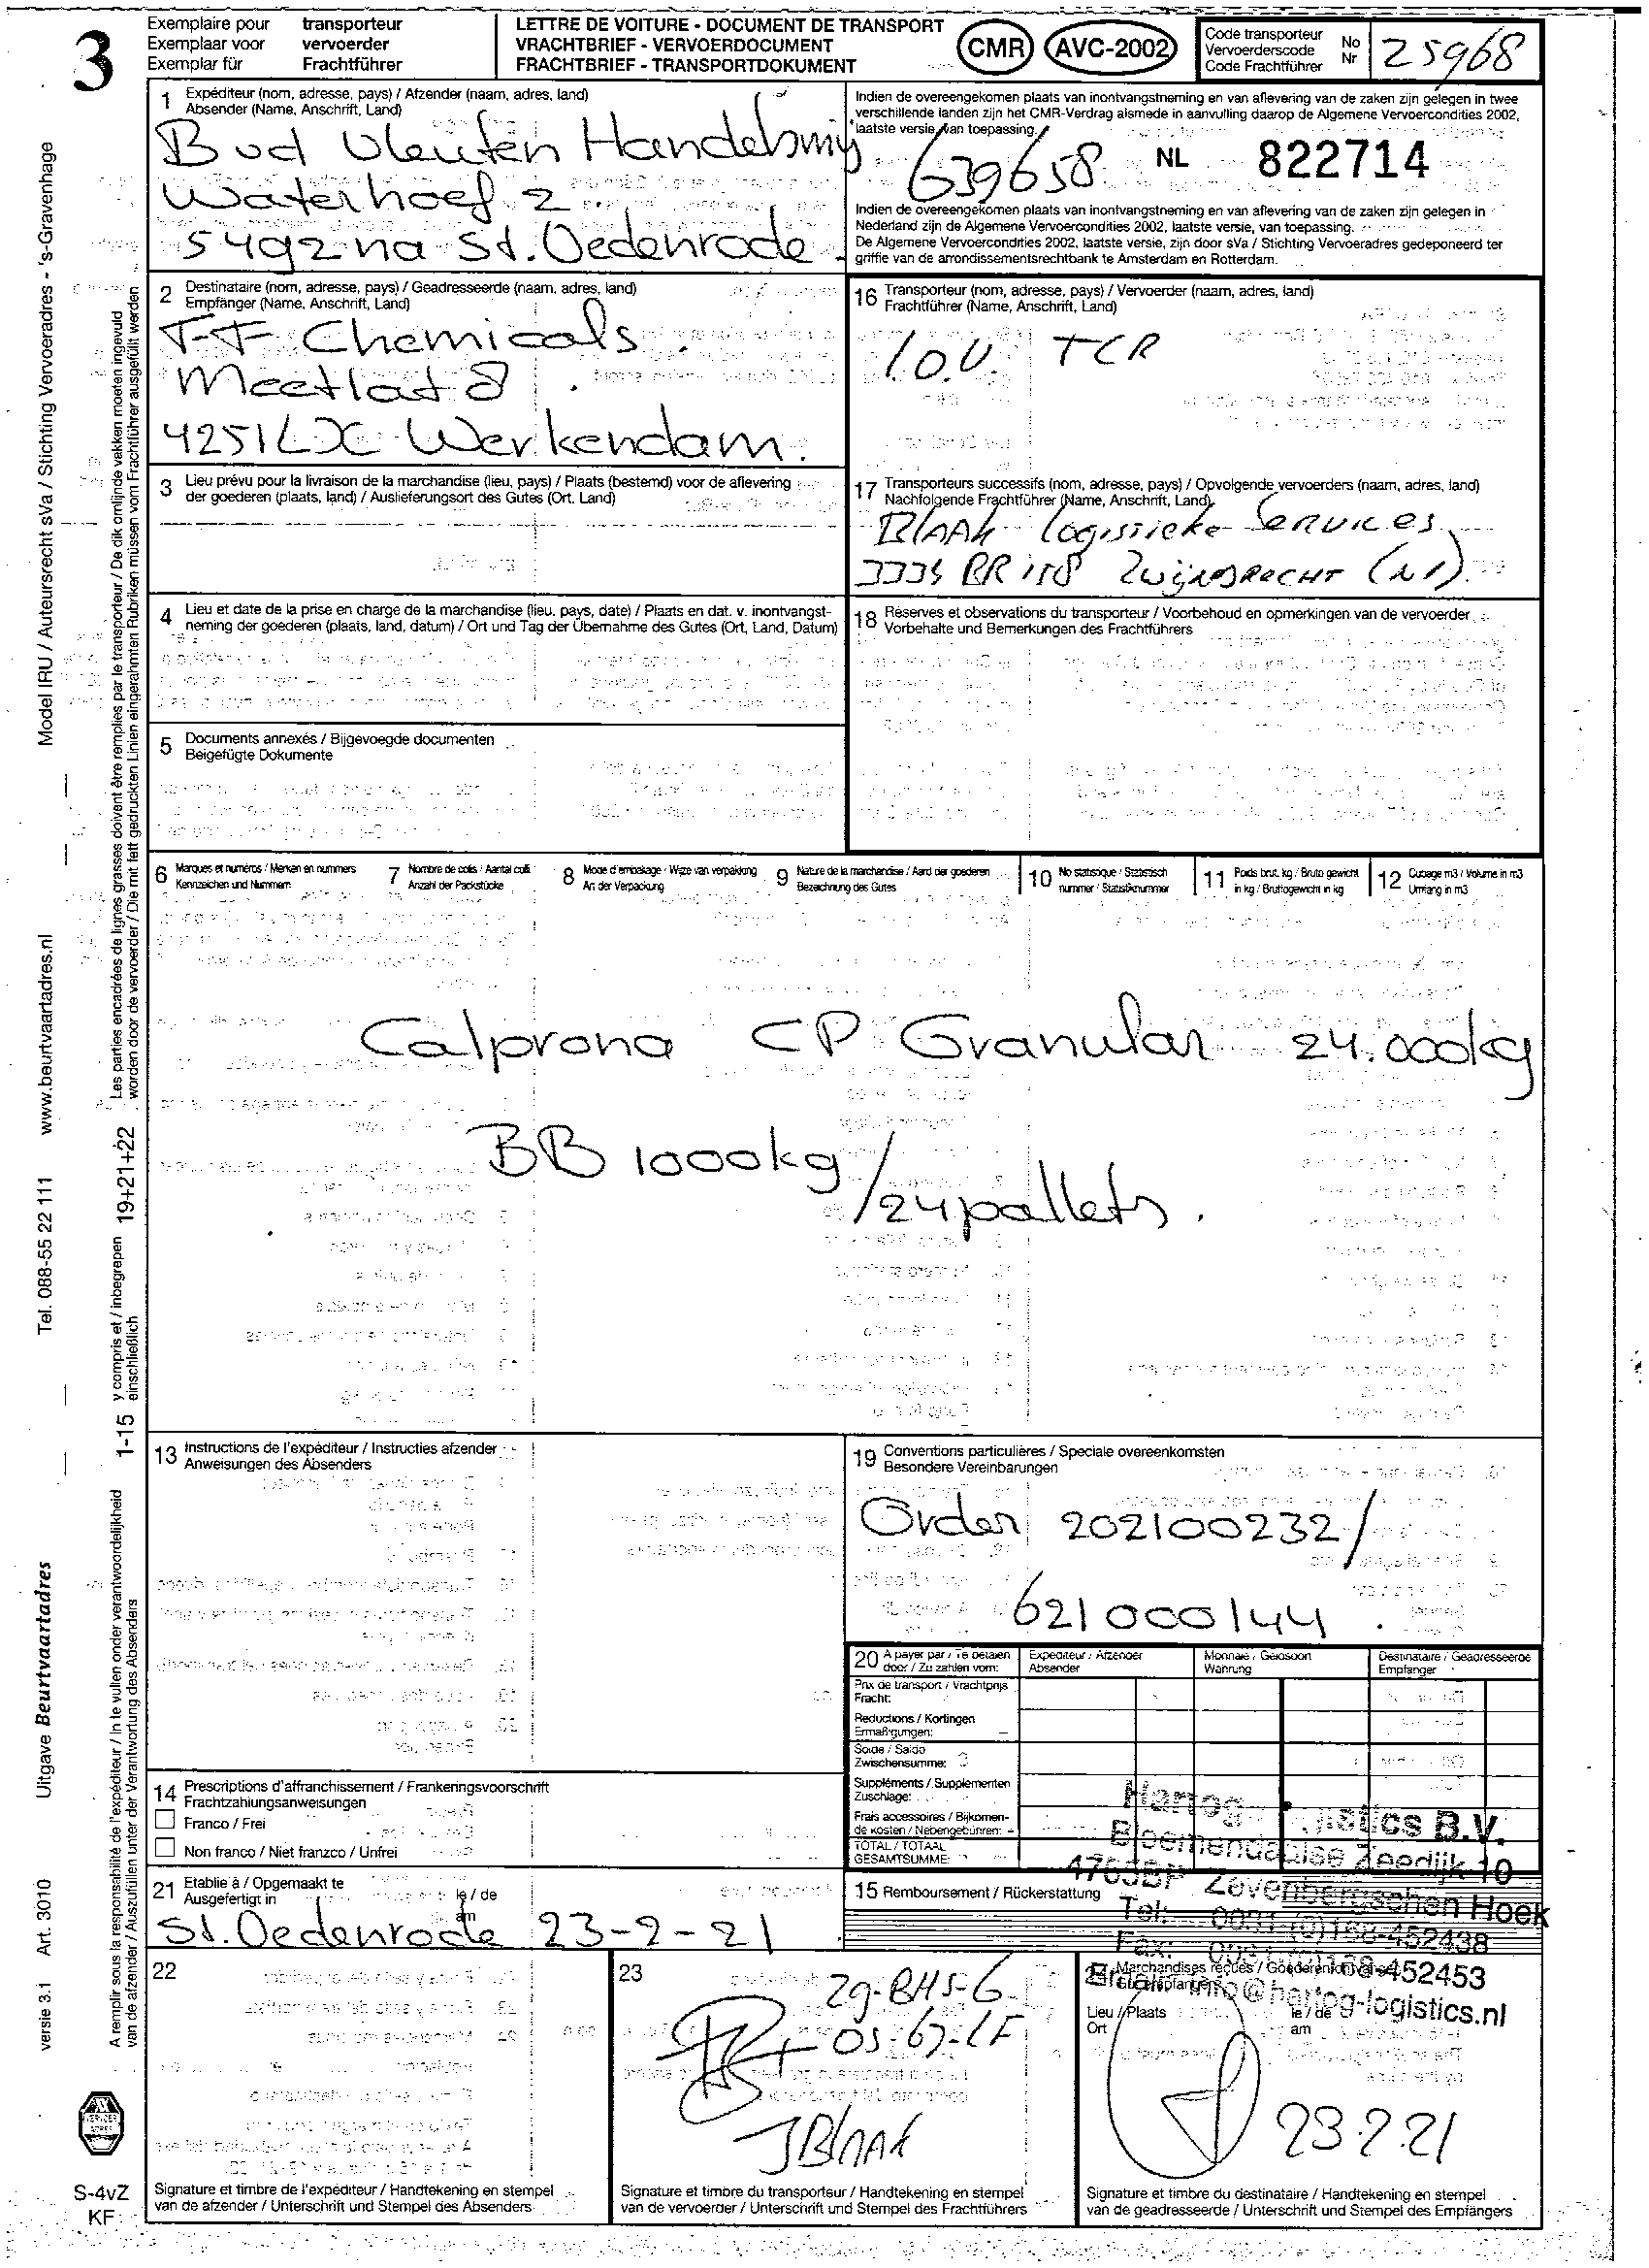 3
Exemplaire pour transporteur
Exemplaar voor vervoerder
Exemplar für Frachtführer
LETTRE DE VOITURE - DOCUMENT DE TRANSPORT
VRACHTBRIEF - VERVOERDOCUMENT
FRACHTBRIEF - TRANSPORTDOKUMENT
CMR AVC-2002
Code transporteur
Vervoerderscode
Code Frachtführer
No
Nr
25968
1 Expéditeur (nom, adresse, pays) / Afzender (naam, adres, land)
Absender (Name, Anschrift, Land)
Bud Vleuten Handelsmij
Waterhoef 2
5492 na St. Oedenrode
Indien de overeengekomen plaats van inontvangstneming en van aflevering van de zaken zijn gelegen in twee
verschillende landen zijn het CMR-Verdrag alsmede in aanvulling daarop de Algemene Vervoercondities 2002,
laatste versie, van toepassing.
639658 NL 822714
Indien de overeengekomen plaats van inontvangstneming en van aflevering van de zaken zijn gelegen in
Nederland zijn de Algemene Vervoercondities 2002, laatste versie, van toepassing.
De Algemene Vervoercondities 2002, laatste versie, zijn door sVa / Stichting Vervoeradres gedeponeerd ter
griffie van de arrondissementsrechtbank te Amsterdam en Rotterdam.
2 Destinataire (nom, adresse, pays) / Geadresseerde (naam, adres, land)
Empfänger (Name, Anschrift, Land)
T-F Chemicals.
Meetlat 8
4251LX Werkendam.
16 Transporteur (nom, adresse, pays) / Vervoerder (naam, adres, land)
Frachtführer (Name, Anschrift, Land)
I.O.V. TCR
3 Lieu prévu pour la livraison de la marchandise (lieu, pays) / Plaats (bestemd) voor de aflevering
der goederen (plaats, land) / Auslieferungsort des Gutes (Ort, Land)
17 Transporteurs successifs (nom, adresse, pays) / Opvolgende vervoerders (naam, adres, land)
Nachfolgende Frachtführer (Name, Anschrift, Land)
Blaak logistieke Services
Zwijndrecht (Nl)
4 Lieu et date de la prise en charge de la marchandise (lieu, pays, date) / Plaats en dat. v. inontvangst-
neming der goederen (plaats, land, datum) / Ort und Tag der Übernahme des Gutes (Ort, Land, Datum)
18 Réserves et observations du transporteur / Voorbehoud en opmerkingen van de vervoerder
Vorbehalte und Bemerkungen des Frachtführers
5 Documents annexés / Bijgevoegde documenten
Beigefügte Dokumente
6 Marques et numéros / Merken en nummers
Kennzeichen und Nummern
7 Nombre de colis / Aantal colli
Anzahl der Packstücke
8 Mode d'emballage / Wijze van verpakking
Art der Verpackung
9 Nature de la marchandise / Aard der goederen
Bezeichnung des Gutes
10 No statistique / Statistisch
nummer / Statistiknummer
11 Poids brut, kg / Bruto gewicht
in kg / Bruttogewicht in kg
12 Cubage m3 / Volume in m3
Umfang in m3
Calprona CP Granular 24.000kg
BB 1000kg
/24 pallets.
13 Instructions de l'expéditeur / Instructies afzender
Anweisungen des Absenders
19 Conventions particulières / Speciale overeenkomsten
Besondere Vereinbarungen
Order 202100232/
621000144
20 A payer par / Te betalen
door / Zu zahlen vom:
Expediteur / Afzender
Absender
Monnaie / Geldsoort
Wahrung
Destinataire / Geadresseerde
Empfanger
Prix de transport / Vrachtprijs
Fracht:
Reductions / Kortingen
Ermaßigungen:
Solde / Saldo
Zwischensumme:
Suppléments / Supplementen
Zuschlage:
Frais accessoires / Bijkomen-
de kosten / Nebengebühren:
TOTAL / TOTAAL
GESAMTSUMME:
14 Prescriptions d'affranchissement / Frankeringsvoorschrift
Frachtzahlungsanweisungen
Franco / Frei
Non franco / Niet franzco / Unfrei
Hartog B.V.
Bloemendaalse Zeedijk 10
Zevenbergschen Hoek
Tel: 0031-(0)168-452438
Fax: 0031-(0)168-452453
info@hartog-logistics.nl
21 Etablie à / Opgemaakt te
Ausgefertigt in
le / de
am
St. Oedenrode 23-2-21
15 Remboursement / Rückerstattung
22
23
29-BHS-6
05-67-LF
J Blaak
Marchandises reçues / Goederen ontvangen
Lieu / Plaats
Ort
le / de
am
23.2.21
Signature et timbre de l'expéditeur / Handtekening en stempel
van de afzender / Unterschrift und Stempel des Absenders
Signature et timbre du transporteur / Handtekening en stempel
van de vervoerder / Unterschrift und Stempel des Frachtführers
Signature et timbre du destinataire / Handtekening en stempel
van de geadresseerde / Unterschrift und Stempel des Empfängers
Model IRU / Auteursrecht sVa / Stichting Vervoeradres - 's-Gravenhage
www.beurtvaartadres.nl
Tel. 088-55 22 111
Uitgave Beurtvaartadres
Art. 3010
versie 3.1
Les parties encadrées de lignes grasses doivent être remplies par le transporteur / De dik omlijnde vakken moeten ingevuld
worden door de vervoerder / Die mit fett gedruckten Linien eingerahmten Rubriken müssen vom Frachtführer ausgefüllt werden
19+21+22
y compris et / inbegrepen
einschließlich
1-15
A remplir sous la responsabilité de l'expéditeur / In te vullen onder verantwoordelijkheid
van de afzender / Auszufüllen unter der Verantwortung des Absenders
S-4vZ
KF